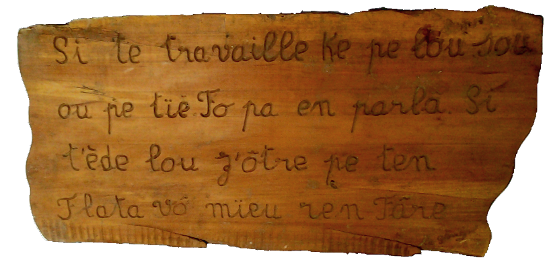 Si te travaille ke pe lou sou
ou pe tïé To pa en parla Si
t'ède lou z'ôtre pe ten
Flata vó mïeu ren Fâre